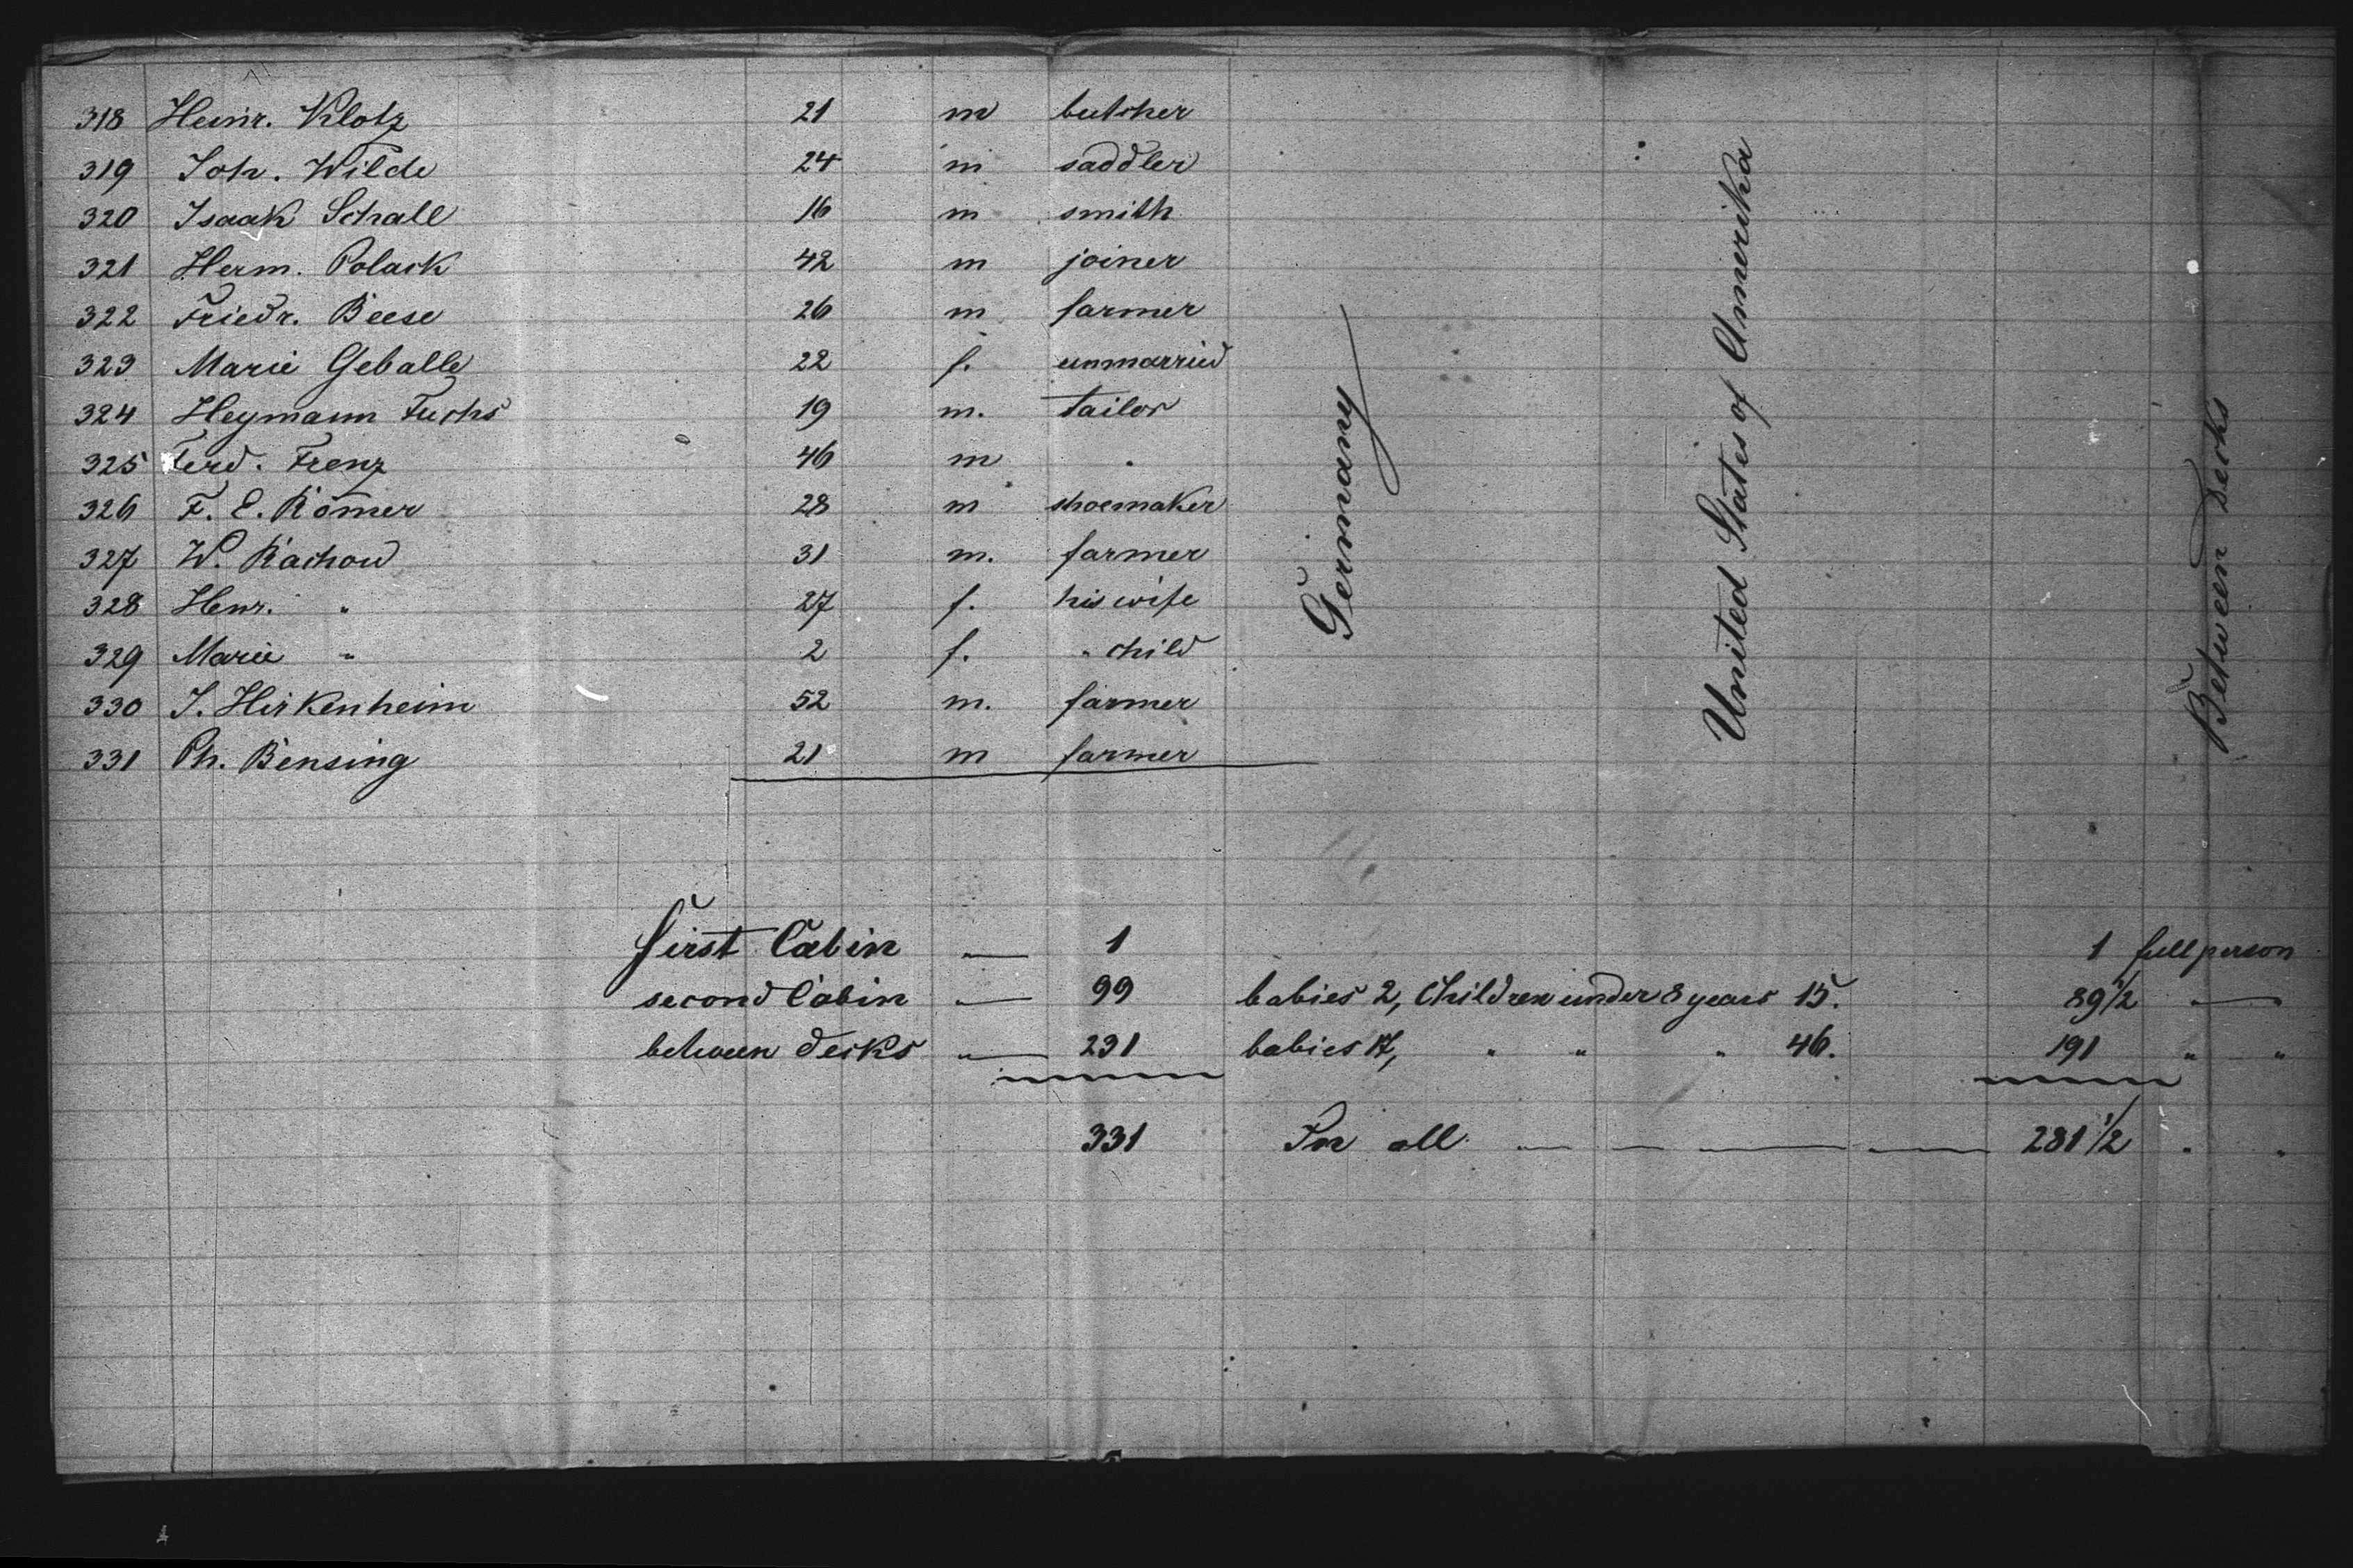 318 Heinr. Klotz 21 m butcher
319 Joh. Wilde 24 m saddler
320 Isaak Schall 16 m smith
321 Herm. Polack 42 m joiner
322 Friedr. Beese 26 m farmer
323 Marie Geballe 22 f. unmarried
324 Heymann Fuchs 19 m. tailor
325 Ferd. Frenz 46 m "
326 F. E. Römer 28 m shoemaker
327 W. Rachow 31 m. farmer
328 Henr. " 27 f. his wife
329 Marie " 2 f. " child
330 J. Hirkenheim 52 m. farmer
331 Ph. Bensing 21 m farmer
Germany
United States of Amerika
Between Decks
first Cabin — 1 1 full person
second Cabin — 99 babies 2, Children under 8 years 15. 89 1/2 —
between decks " — 231 babies 17, " " " 46. 191 " "
331 In all — — — — 281 1/2 " "